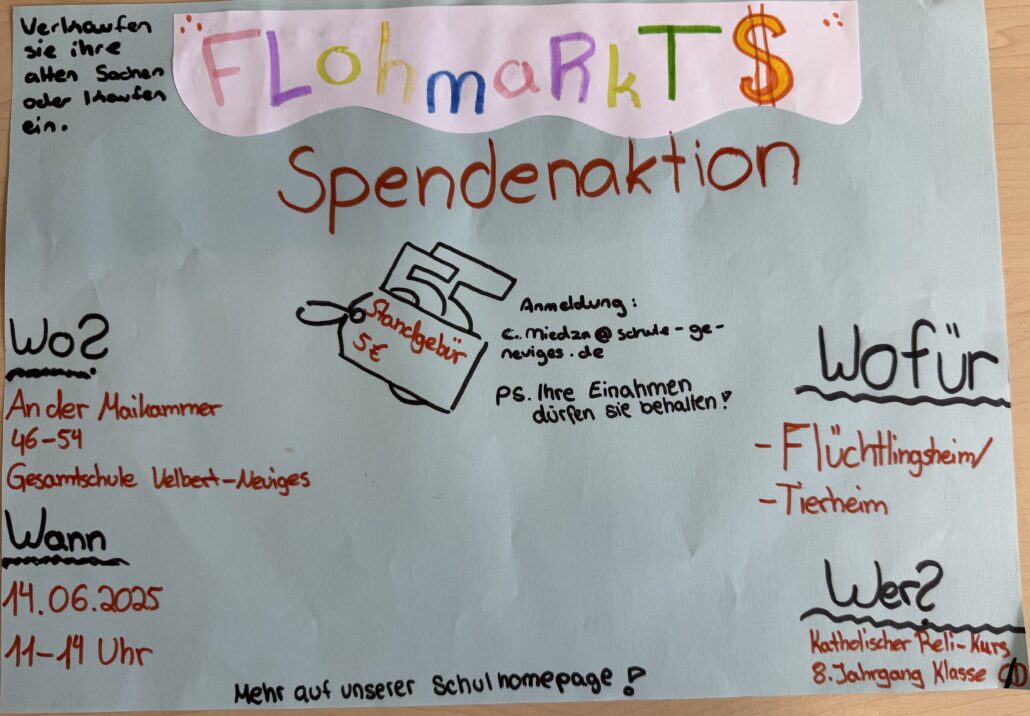 Verkaufen
sie ihre
alten Sachen
oder kaufen
ein.
FLohmaRkT $
Spendenaktion
5€
Standgebür
5€
Anmeldung:
c.miedza@schule-ge-
neviges.de
PS. Ihre Einahmen
dürfen sie behalten!
Wo?
An der Maikammer
46-54
Gesamtschule Velbert-Neviges
Wann
14.06.2025
11-14 Uhr
Wofür
-Flüchtlingsheim/
-Tierheim
Wer?
Katholischer Reli-Kurs
8. Jahrgang Klasse
Mehr auf unserer Schulhomepage!